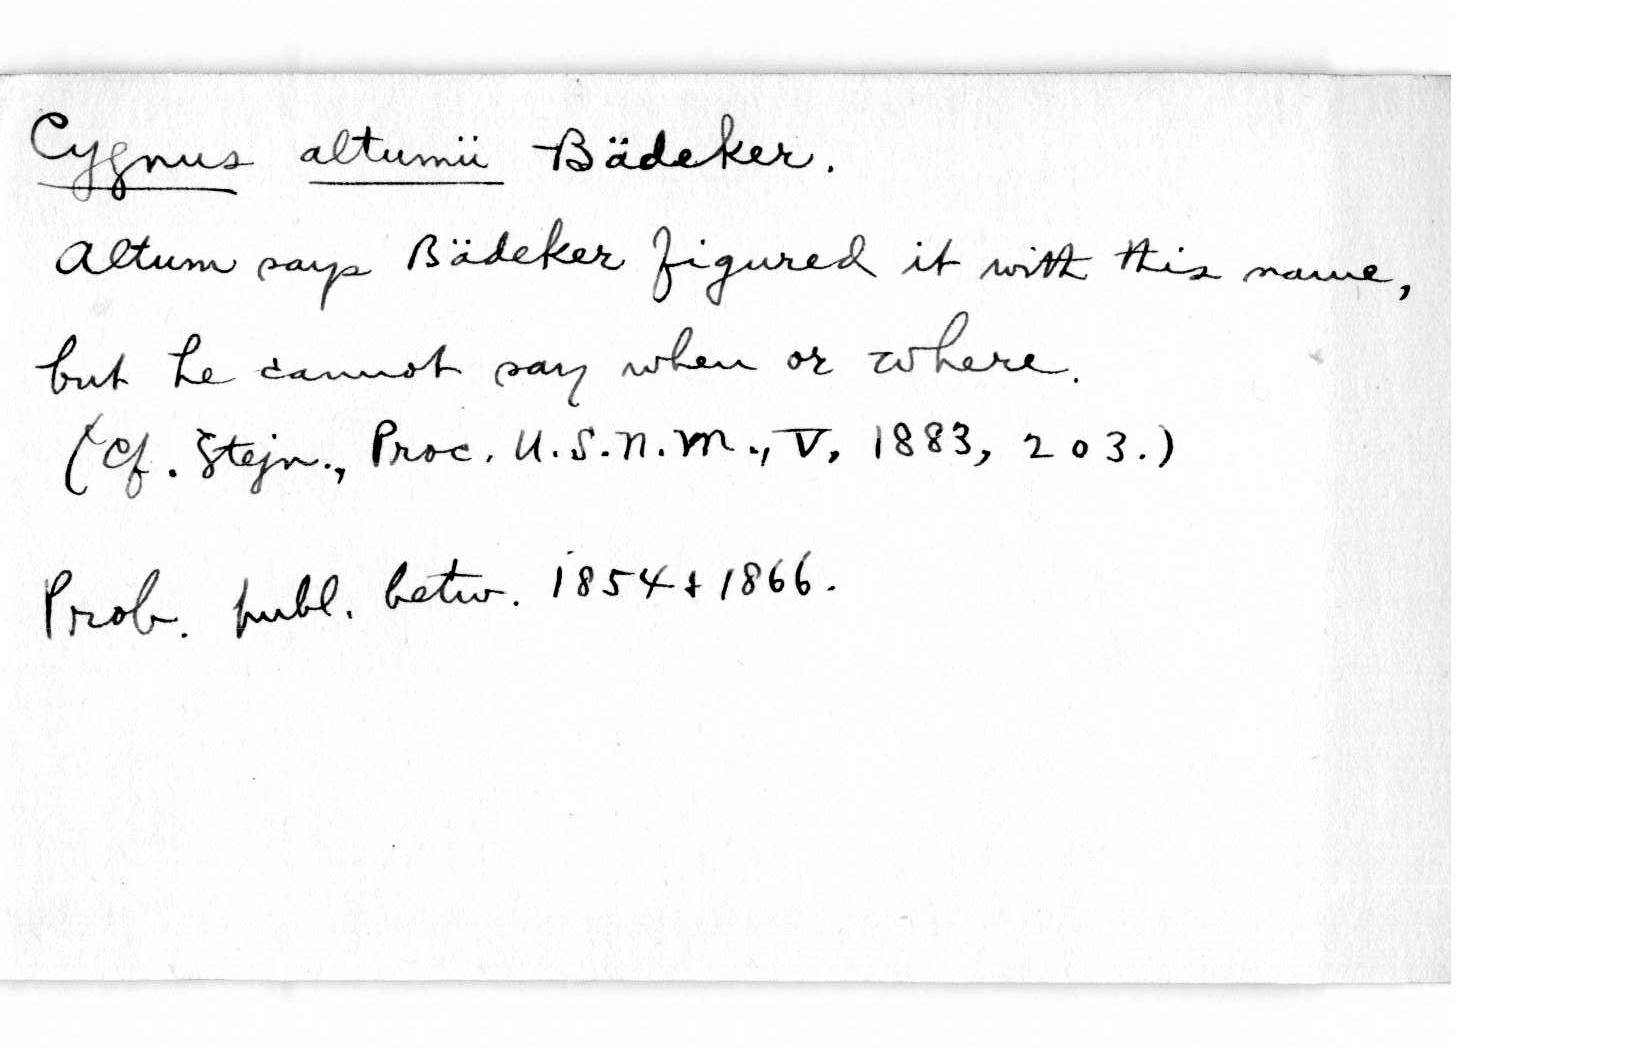 Cygnus altumii Bädeker.
Altum says Bädeker figured it with this name,
but he cannot say when or where.
(Cf. Stejn., Proc. U.S.N.M., V, 1883, 203.)
Prob. publ. betw. 1854 & 1866.